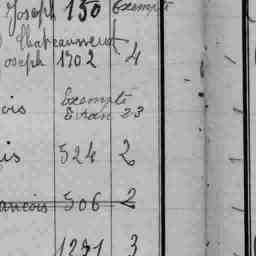 Joseph 150 Exempté
Chateauneuf
Joseph 1702 4
ois Exempté
23
is 524 2
ancois 506 2
1291 3